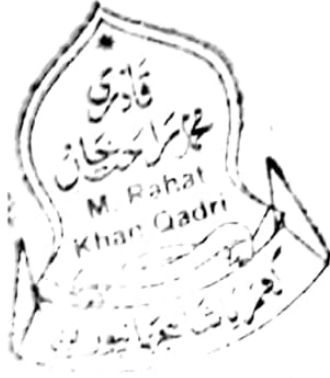 قادری
محمد راحت خان
M. Rahat
Khan Qadri